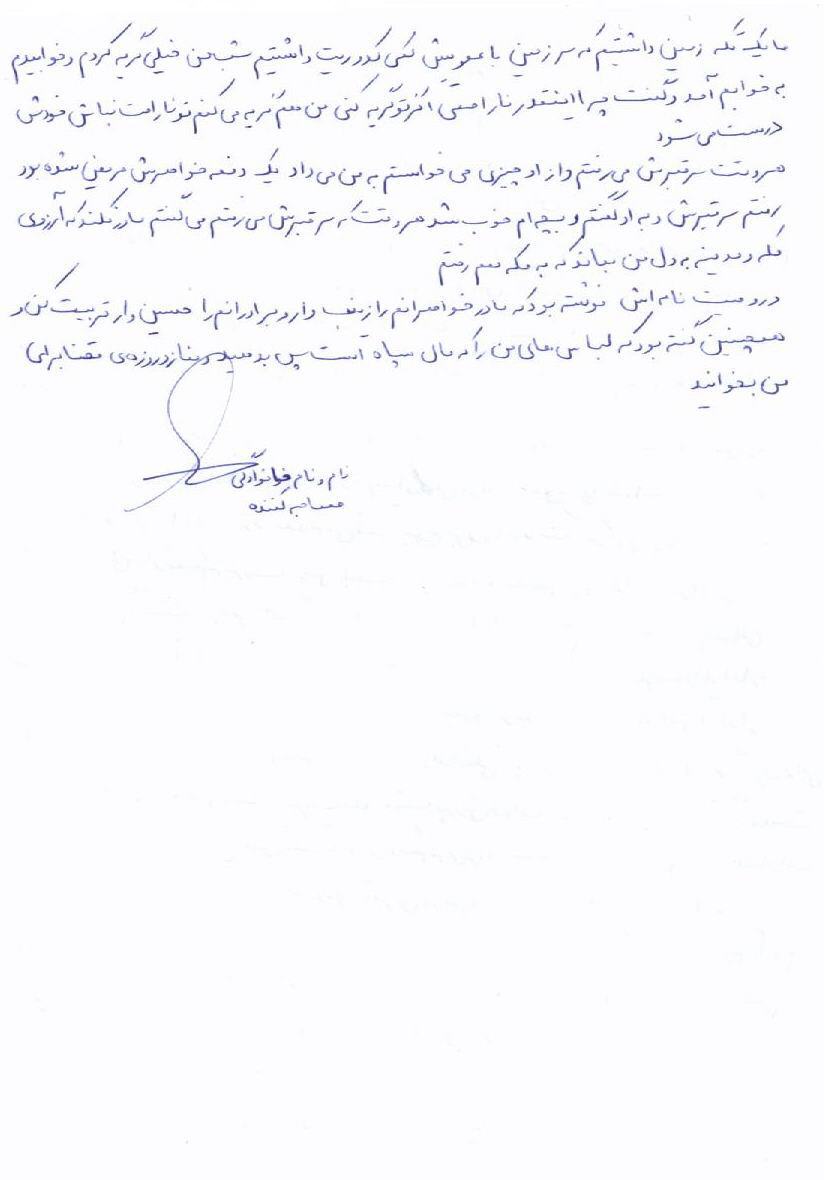 ما یک تکه زمین داشتیم که سر زمین با عمویش کمی کدوریت داشتیم شب من خیلی گریه کردم و خوابیدم
به خوابم آمد و گفت چرا اینقدر ناراحتی اگر تو گریه کنی من هم گریه می کنم تو ناراحت نباش خودش
درست می شود
هر وقت سر قبرش می رفتم و از او چیزی می خواستم به من می داد یک دفعه خواهرش مریض شده بود
رفتم سر قبرش و به او گفتم و بچه ام خوب شد هر وقت که سر قبرش می رفتم می گفتم مادر نکند که آرزوی
مکه و مدینه به دل من بماند که به مکه هم رفتم
در وصیت نامه اش نوشته بود که مادر خواهرانم را زینب وار و برادرانم را حسین وار تربیت کن و
همچنین گفته بود که لباس های من را که مال سپاه است پس بدهید و نماز و روزه ی قضا برای
من بخوانید
نام و نام خانوادگی
مصاحبه کننده